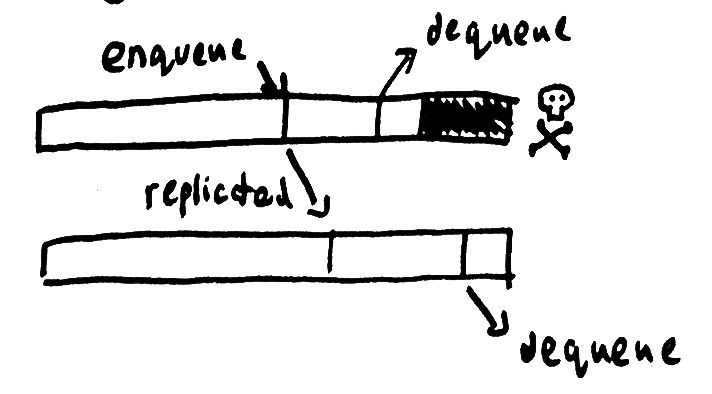 dequeue
enqueue
replicated
dequeue